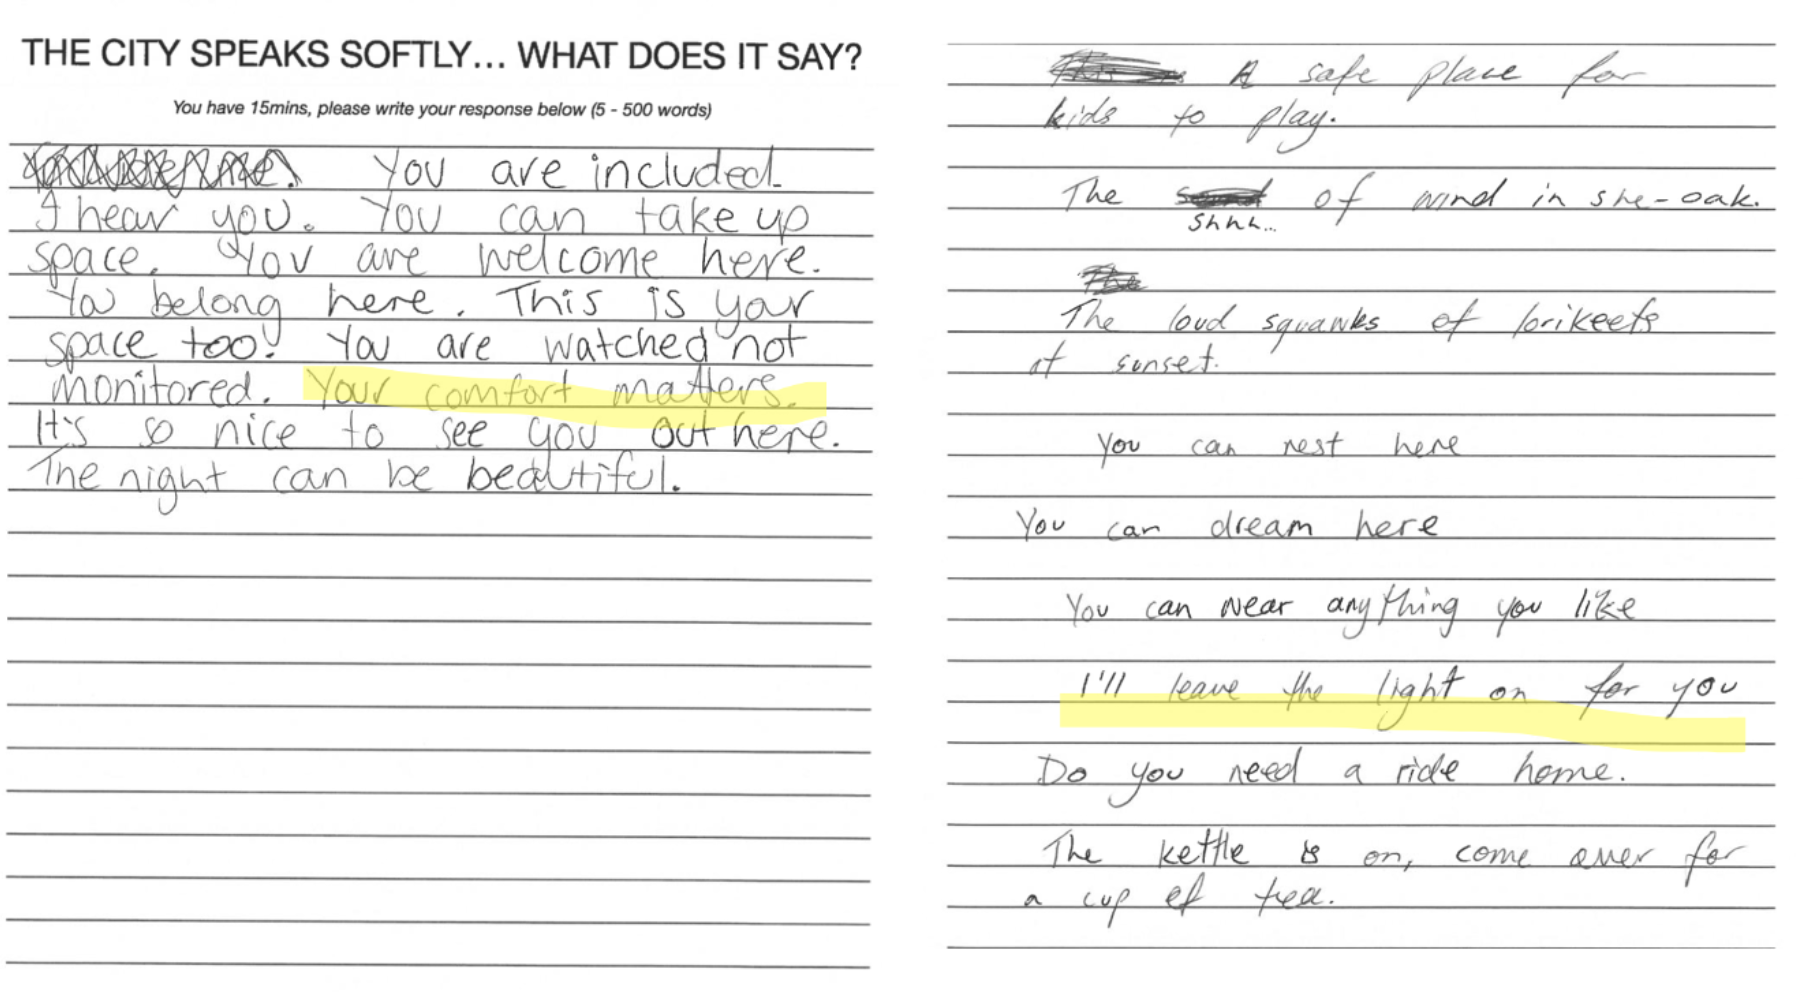 THE CITY SPEAKS SOFTLY... WHAT DOES IT SAY?
You have 15mins, please write your response below (5 - 500 words)
You are included.
I hear you. You can take up
space. You are welcome here.
You belong here. This is your
space too! You are watched not
monitored. Your comfort matters.
It's so nice to see you out here.
The night can be beautiful.
A safe place for
kids to play.
The of wind in she-oak.
shhh...
The loud squawks of lorikeets
at sunset.
You can rest here
You can dream here
You can wear anything you like
I'll leave the light on for you
Do you need a ride home.
The kettle is on, come over for
a cup of tea.